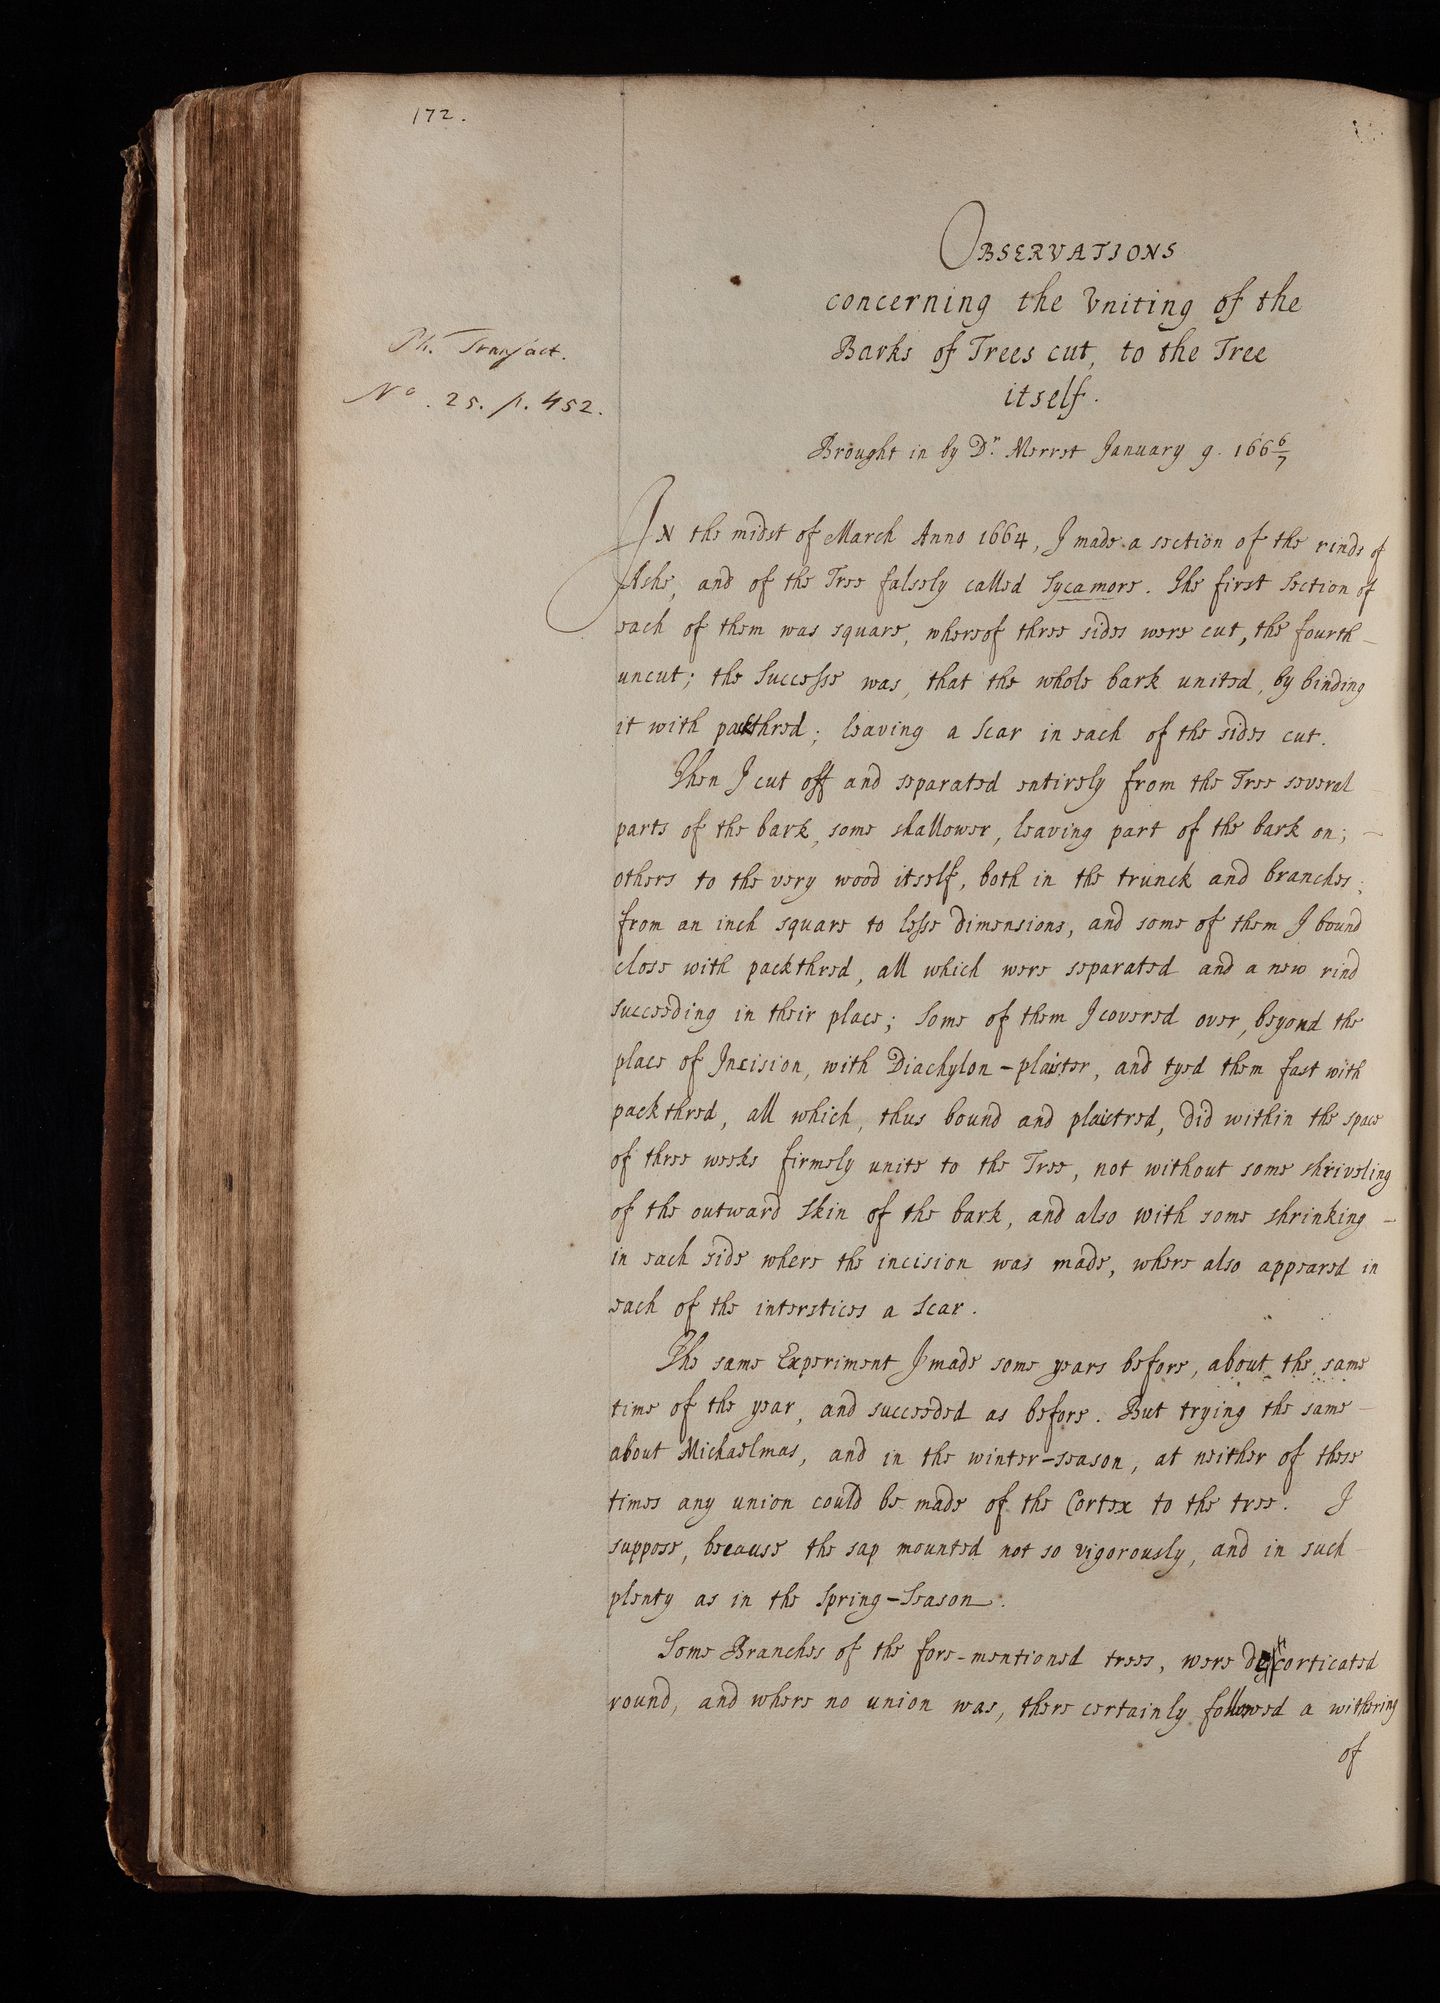 172.
OBSERVATIONS
concerning the Vniting of the
Barks of Trees cut, to the Tree
itself.
Ph. Transact.
No. 25. p. 452.
Brought in by Dr. Merret January 9. 166 6/7
In the midst of March Anno 1664, I made a section of the rinds of
Ashe, and of the Tree falsely called Sycamore. The first Section of
each of them was square, whereof three sides were cut, the fourth
uncut; the Successe was, that the whole bark united, by binding
it with packthred; leaving a Scar in each of the sides cut.
Then I cut off and separated entirely from the Tree several
parts of the bark, some shallower, leaving part of the bark on;
others to the very wood itself, both in the trunck and branches;
from an inch square to lesse dimensions, and some of them I bound
close with packthred, all which were separated and a new rind
succeeding in their place; Some of them I covered over, beyond the
place of Incision, with Diachylon-plaister, and tyed them fast with
packthred, all which, thus bound and plaistred, did within the space
of three weeks firmely unite to the Tree, not without some shriveling
of the outward Skin of the bark, and also with some shrinking
in each side where the incision was made, where also appeared in
each of the interstices a Scar.
The same Experiment I made some years before, about the same
time of the year, and succeeded as before. But trying the same
about Michaelmas, and in the winter-season, at neither of these
times any union could be made of the Cortex to the tree. I
suppose, because the sap mounted not so vigorously, and in such
plenty as in the Spring-Season.
Some Branches of the fore-mentioned trees, were decorticated
round, and where no union was, there certainly followed a withering
of